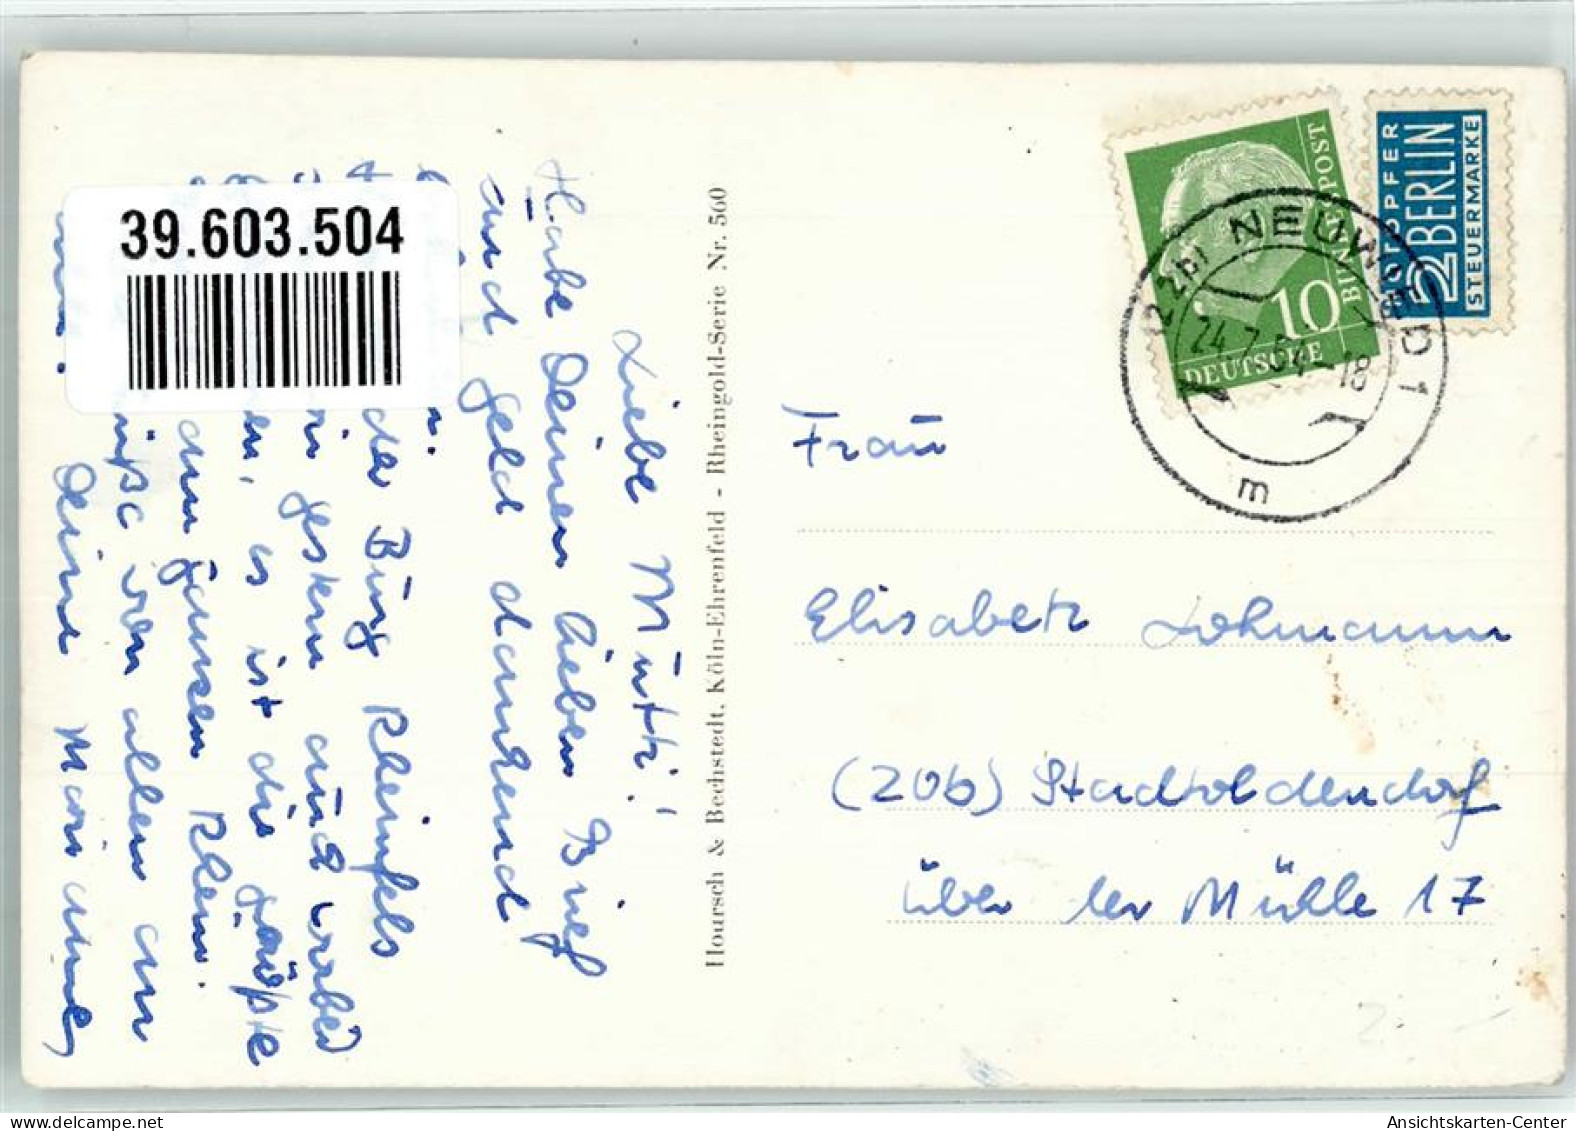 39.603.504
Liebe Mutti!
Habe Deinen lieben Brief
und Geld dankend
der Burg Rheinfels
gestern und
es ist die größte
am ganzen Rhein.
von allen an
Deine
Hoursch & Bechstedt, Köln-Ehrenfeld - Rheingold-Serie Nr. 560
DEUTSCHE BUNDESPOST
10
NOTOPFER
2 BERLIN
STEUERMARKE
(22b) NEUWIED 1
24.7.54-18
m
Frau
Elisabeth Lohmann
(20b) Stadtoldendorf
über der Mühle 17
delcampe.net
Ansichtskarten-Center